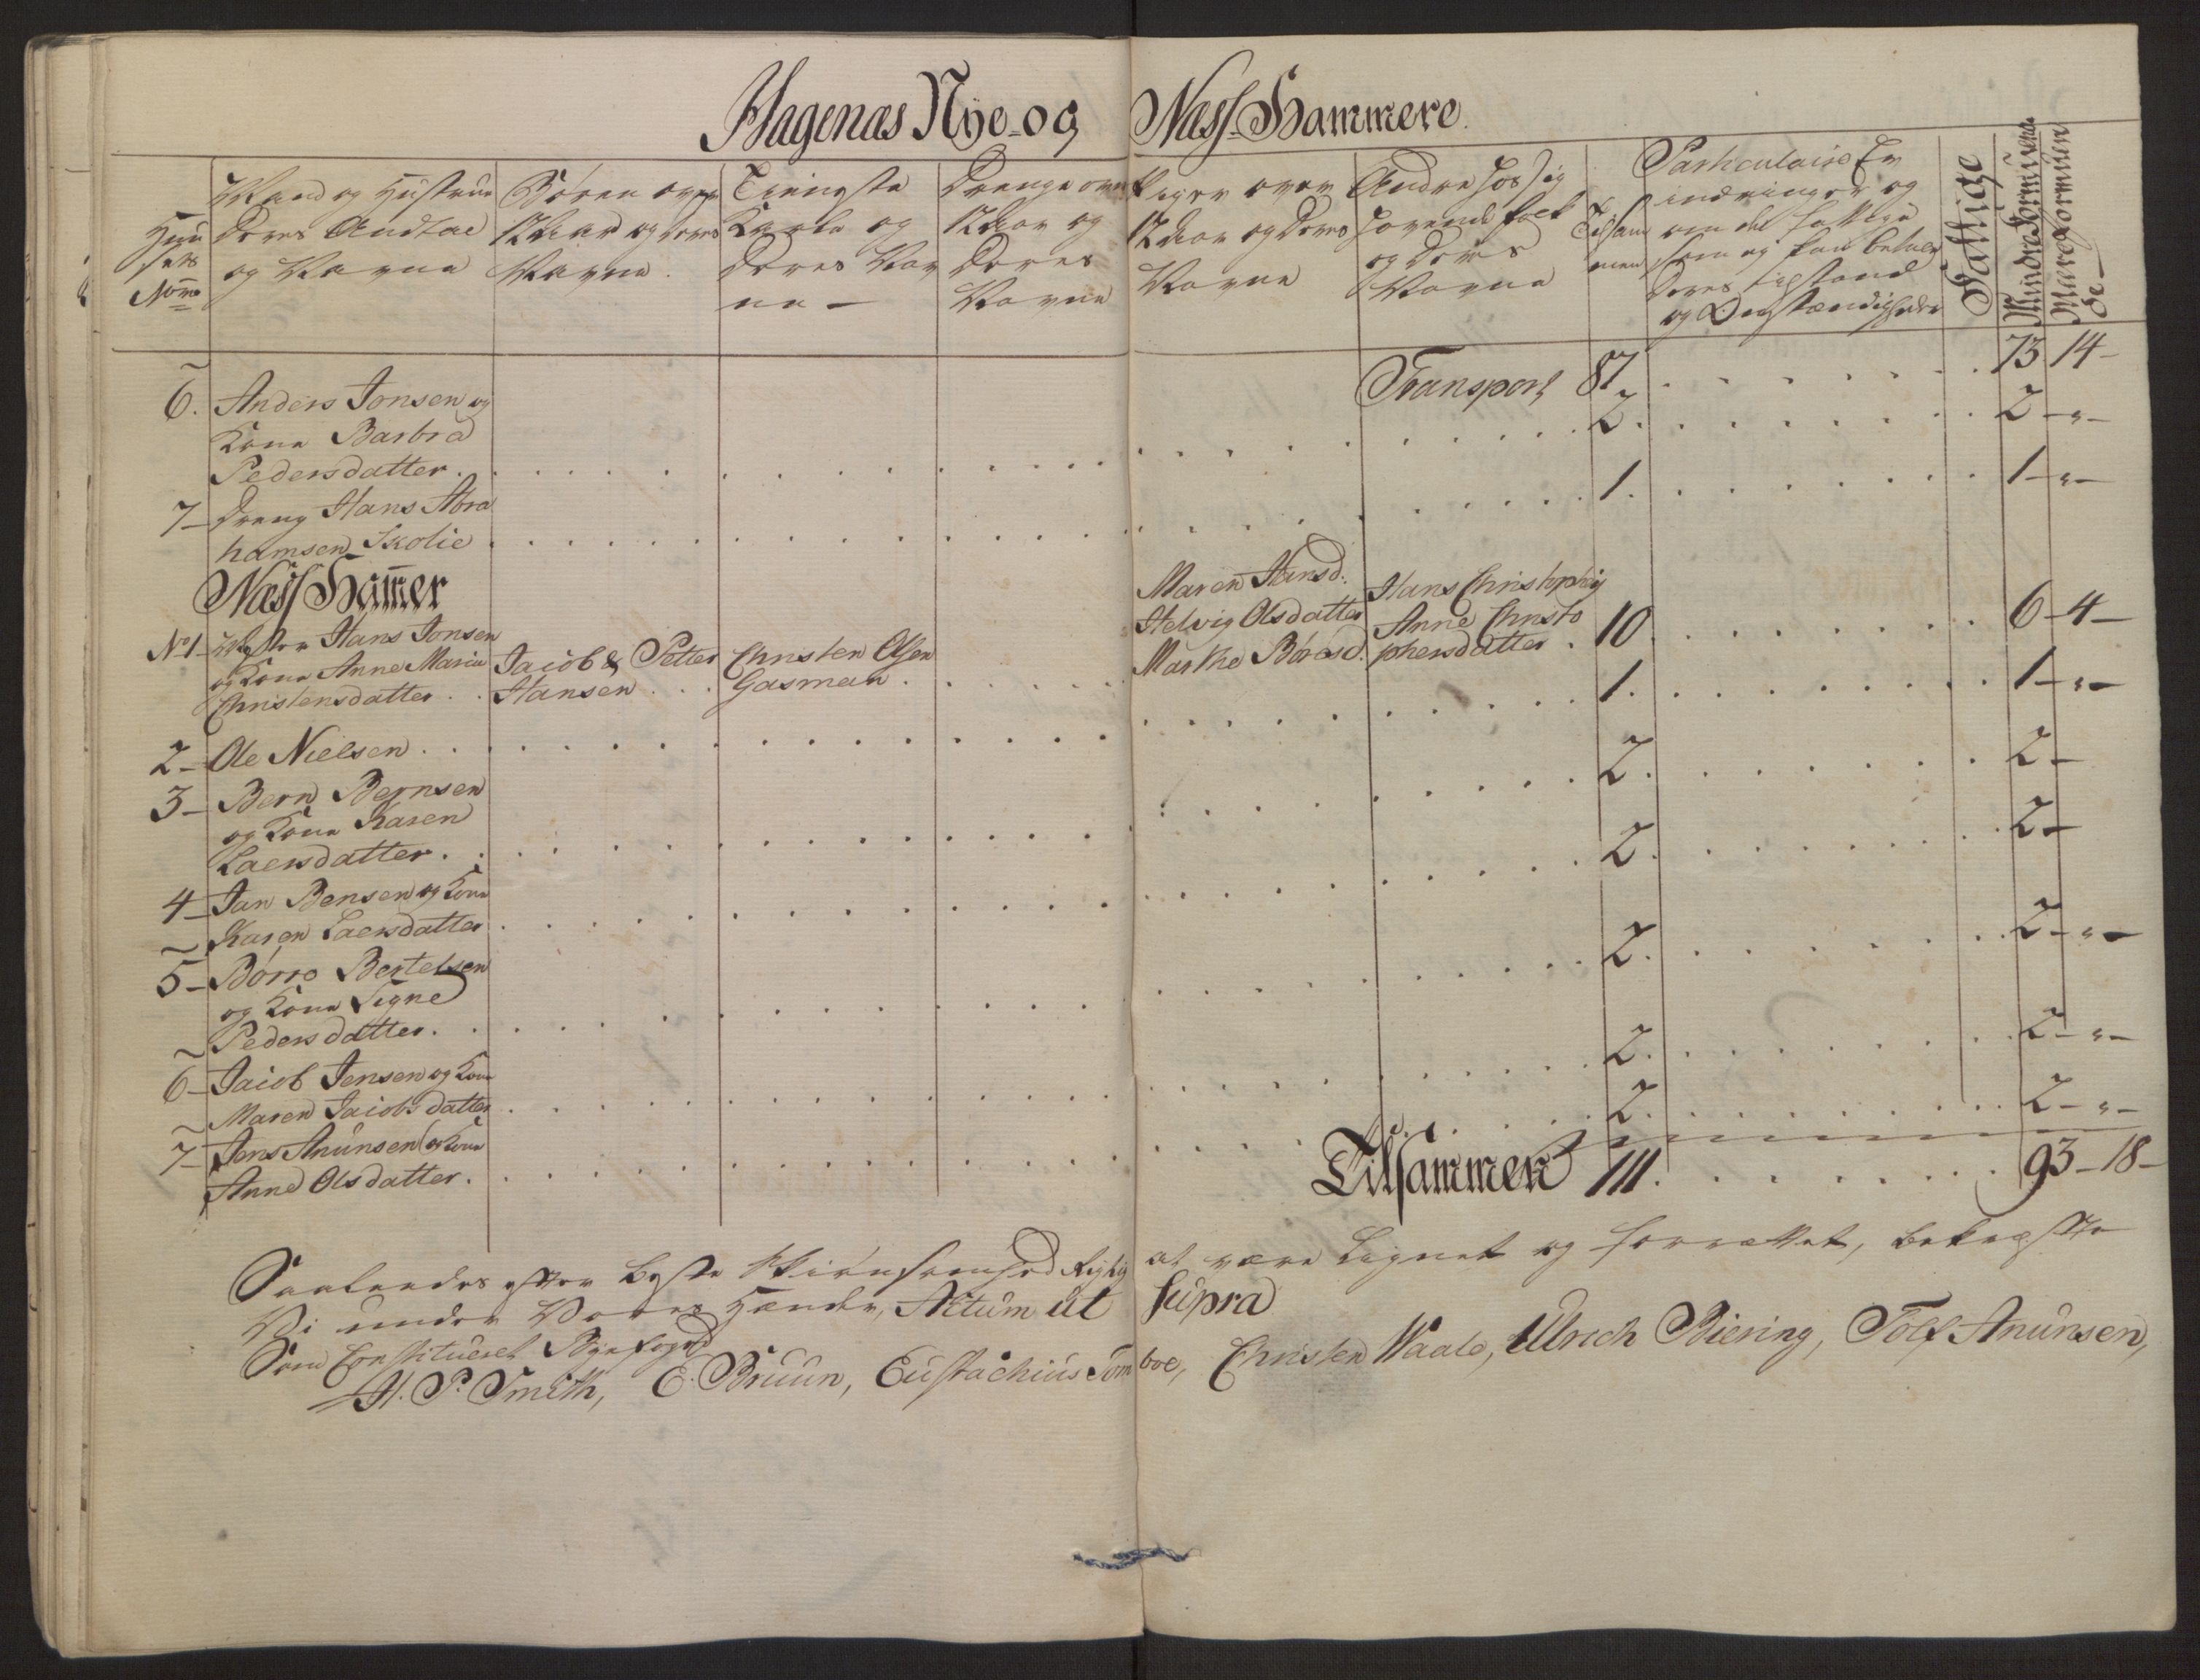 Hagenæs Nÿe og Næss Hammere.
Huu
sets
Nom
Mand og Hustrue
Deres Andtal
og Navne
Børen over
12 Aar og deres
Navne.
Tienneste
Karle og
Deres Nav
ne —
Drenge over
12 Aar og
Deres
Navne
Piger over
12 Aar og Deres
Navne
Andre hos sig
havende folk
og Deres
Navne
Tilsam
men
Particulaire Er
indringer og
om de fattige
som ej kan betale
Deres tilstand
og Omstændigheder
Fattige
Mindre formuende
Meere formuen
de —
Transport 87 . . . . . . . 73 14 -
6. Anders Jonsen og
Kone Barbra
Pedersdatter . . . . 2. . . . . 2 - „ -
7 - Dreng Hans Abra
hamsen Skolie . . . . 1. . . . . 1 - „ -
Næss Hammer
No 1 - Mester Hans Jonsen
og Kone Anne Maria
Christensdatter . .
Jacob & Petter
Hansen . . .
Christen Olsen
Gasman . . . .
Maren Hansd.
Helvig Olsdatter
Marthe Børesd.
Hans Christophers
Anne Christo
phersdatter . 10 . . . . . 6 - 4 -
2 - Ole Nielsen . . . . 1. . . . . 1 - „ -
3 - Bern Bernsen
og Kone Karen
Laersdatter . . . . 2. . . . . 2 -
4 - Jan Bensen og Kone
Karen Laersdatter . . . . 2. . . . . 2 -
5 - Børre Bertelsen
og Kone Signe
Pedersdatter . . . . 2. . . . . 2 - „ -
6 - Jacob Jensen og Kone
Maren Jacobsdatter . . . . 2. . . . . 2 - „ -
7 - Jens Anunsen og Kone
Anne Olsdatter . . . . 2. . . . . 2 - „ -
Tilsammen 111. . . . . . . 93 - 18 -
Saaledes efter beste Skiønsomhed Rigtig at være Lignet og forrættet, bekræfte
Vi under Vores Hænder, Actum ut supra
Som Constitueret Byefoged
H. P. Smith, E. Bruun, Eustachius Tom boe, Christen Waale, Ulrich Biering, Tolf Anunsen,